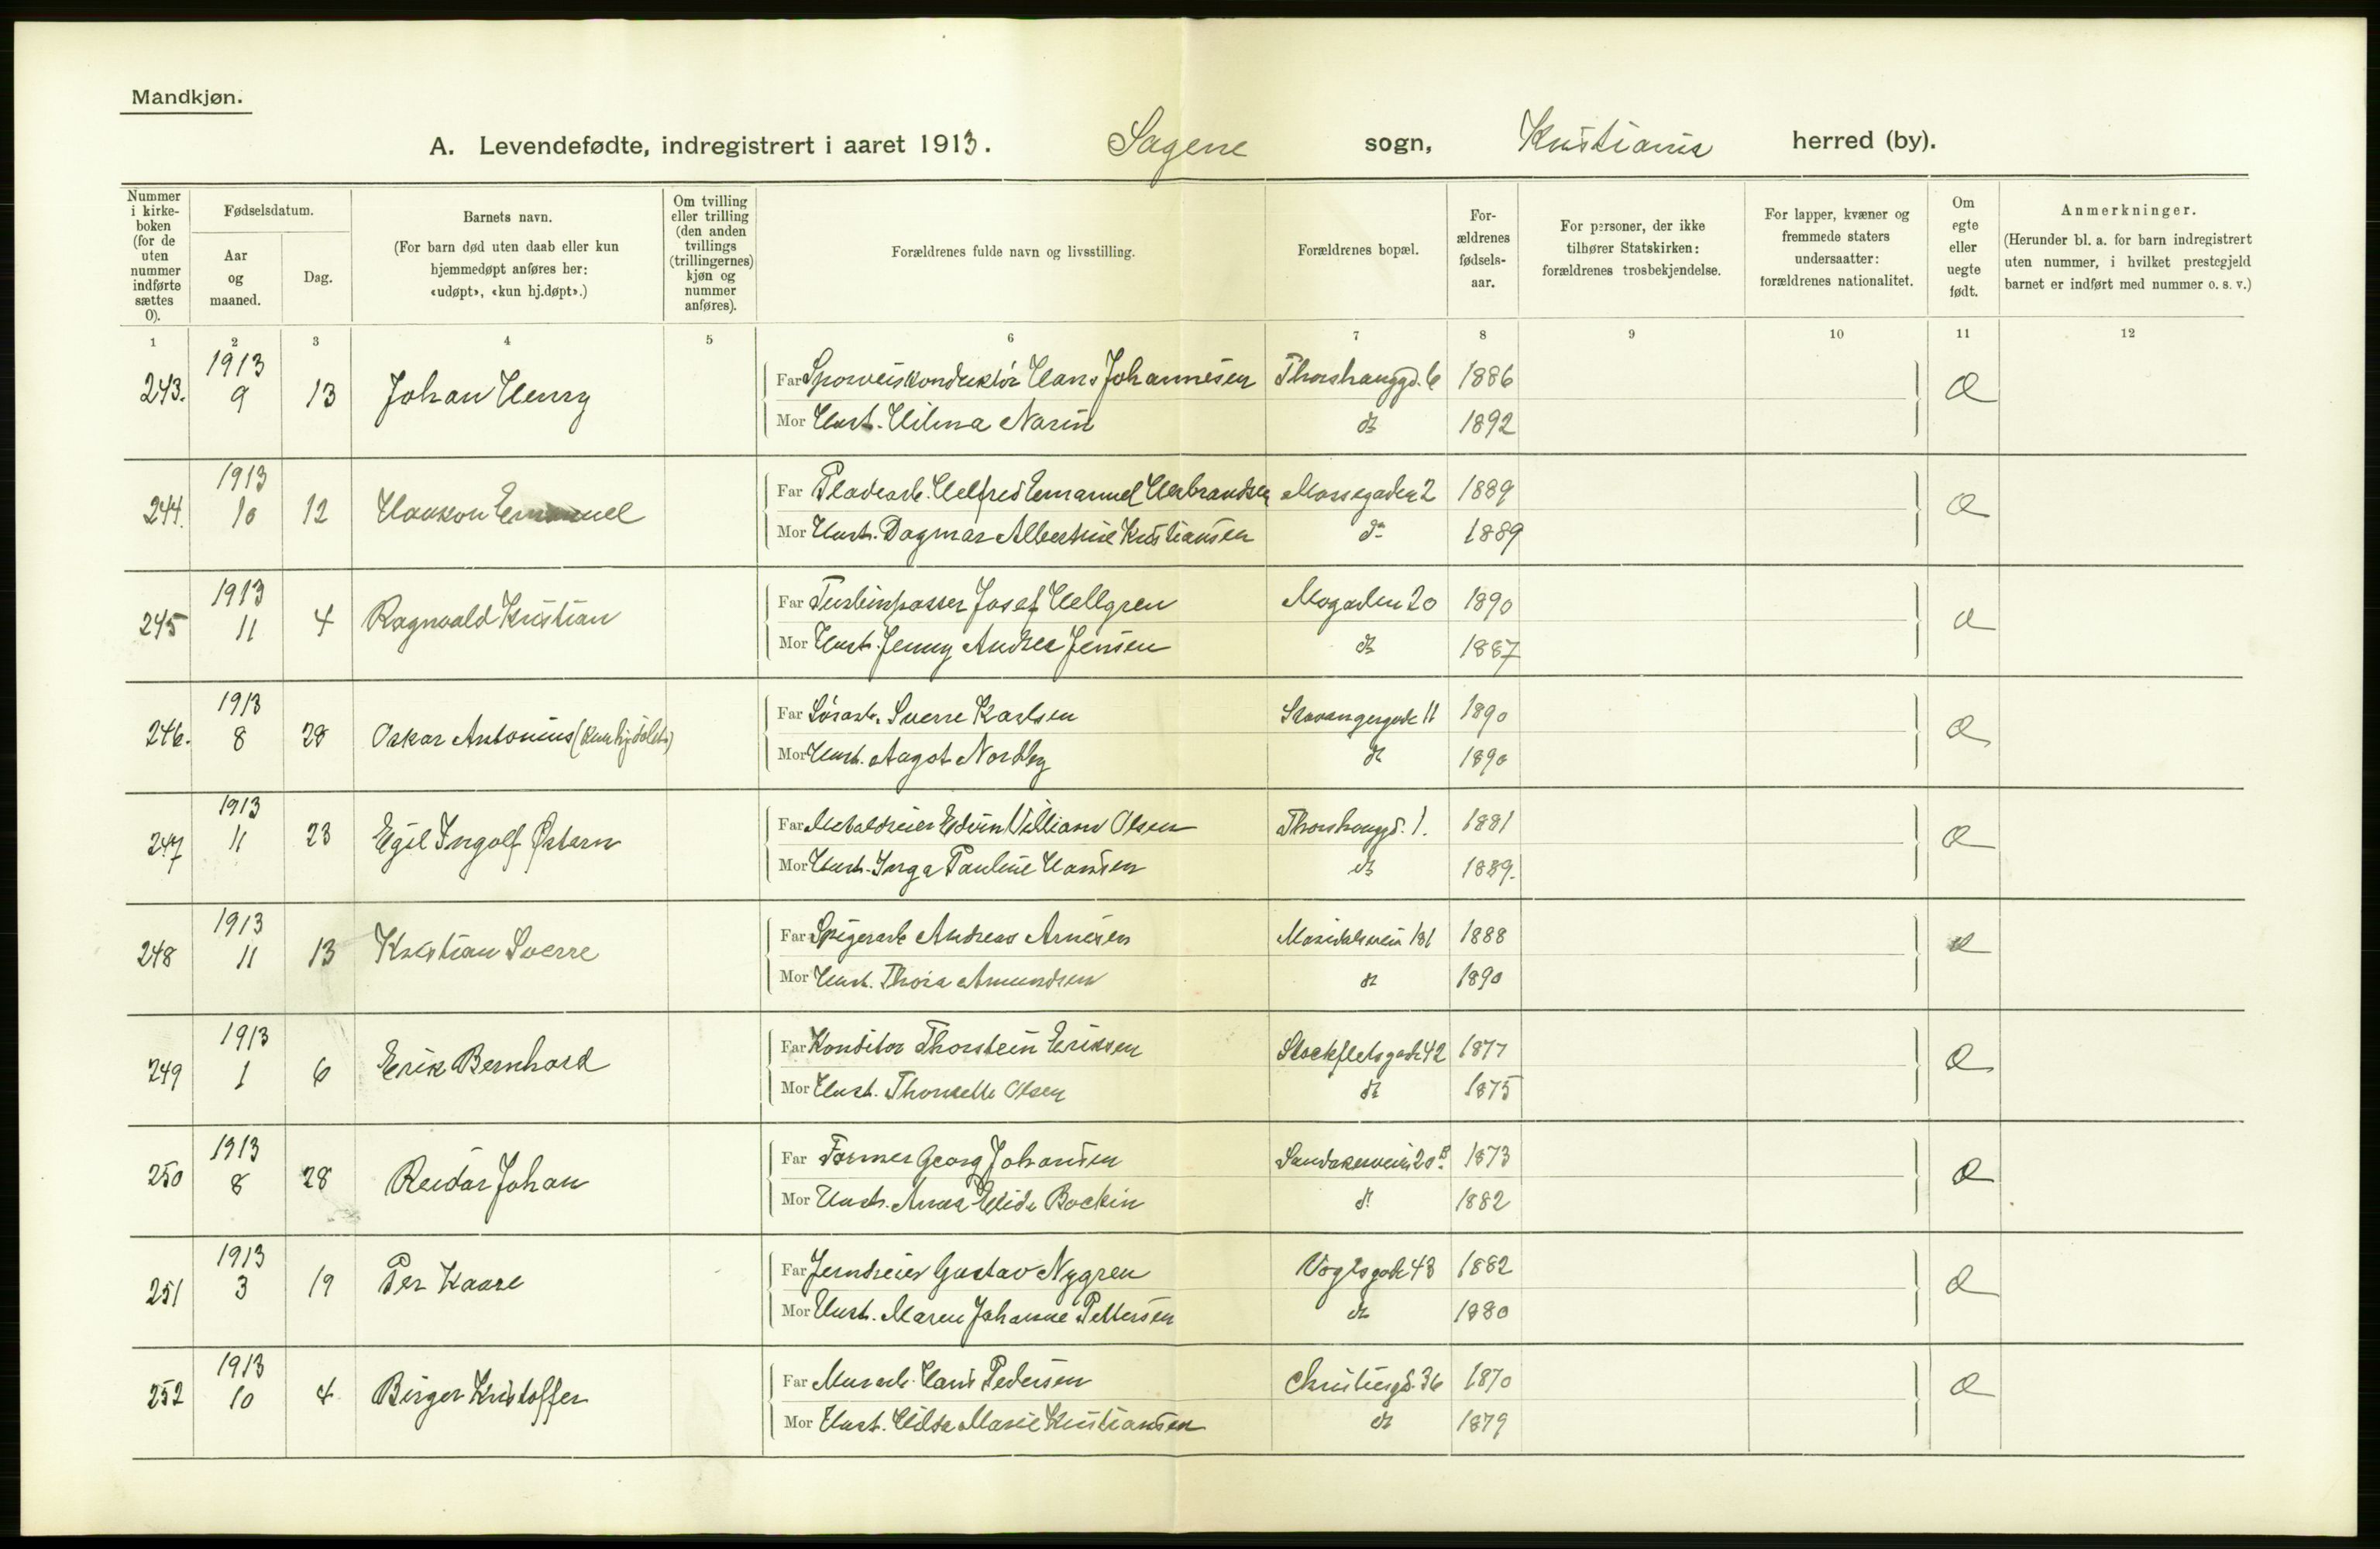 Mandkjøn.
A. Levendefødte, indregistrert i aaret 1913. Sagene sogn, Kristiania herred (by).
Nummer i kirke-boken (for de uten nummer indførte sættes 0).
Fødselsdatum.
Aar og maaned.
Dag.
Barnets navn.
(For barn død uten daab eller kun hjemmedøpt anføres her: «udøpt», «kun hj.døpt».)
Om tvilling eller trilling (den anden tvillings (trillingernes) kjøn og nummer anføres).
Forældrenes fulde navn og livsstilling.
Forældrenes bopæl.
For-ældrenes fødsels-aar.
For personer, der ikke tilhører Statskirken: forældrenes trosbekjendelse.
For lapper, kvæner og fremmede staters undersaatter: forældrenes nationalitet.
Om egte eller uegte født.
Anmerkninger.
(Herunder bl. a. for barn indregistrert uten nummer, i hvilket prestegjeld barnet er indført med nummer o. s. v.)
1 2 3 4 5 6 7 8 9 10 11 12
243. 1913 9 13 Johan Henry Far Sporveiskonduktør Hans Johannesen Thorshauggd. 6 1886
Mor Hust. Hilma Narin do 1892
244. 1913 10 12 Haakon Emanuel Far Pladearb. Helfred Emanuel Herbrandsen Mossegaden 2 1889
Mor Hust. Dagmar Albertine Kristiansen do 1889
245 1913 11 4 Ragnvald Kristian Far Turbinpasser Josef Hellgren Mogaden 20 1890
Mor Hust. Jenny Andrea Jensen do 1887
246. 1913 8 28 Oskar Antonius (kun hjdøbt) Far Sverre Karlsen Stavangergade 11 1890
Mor Hust. Aagot Nordby do 1890
247 1913 11 23 Egil Ingolf Østern Far Metaldreier Edvin William Olsen Thorshauggd. 1. 1881
Mor Hust. Inga Pauline Hansen do 1889.
248 1913 11 13 Kristian Sverre Far Spigerarb Andreas Arnesen Maridalsvein 131 1888
Mor Hust. Thora Amundsen do 1890
249 1913 1 6 Erik Bernhard Far Konditor Thorstein Eriksen Stockfletsgade 42 1877
Mor Hust. Olsen do 1875
250 1913 8 28 Reidar Johan Far Former Georg Johansen Sandakerveien 20B 1873
Mor Hust. Anna Elida Bockin do 1882
251 1913 3 19 Per Kaare Far Jerndreier Gustav Nygren Vogtsgade 43 1882
Mor Hust. Maren Johanne Pettersen do 1880
252 1913 10 4 Birger Kristoffer Far Murarb. Hans Pedersen Christiesgd. 36 1870
Mor Hust. Hilda Marie Kristiansen do 1879